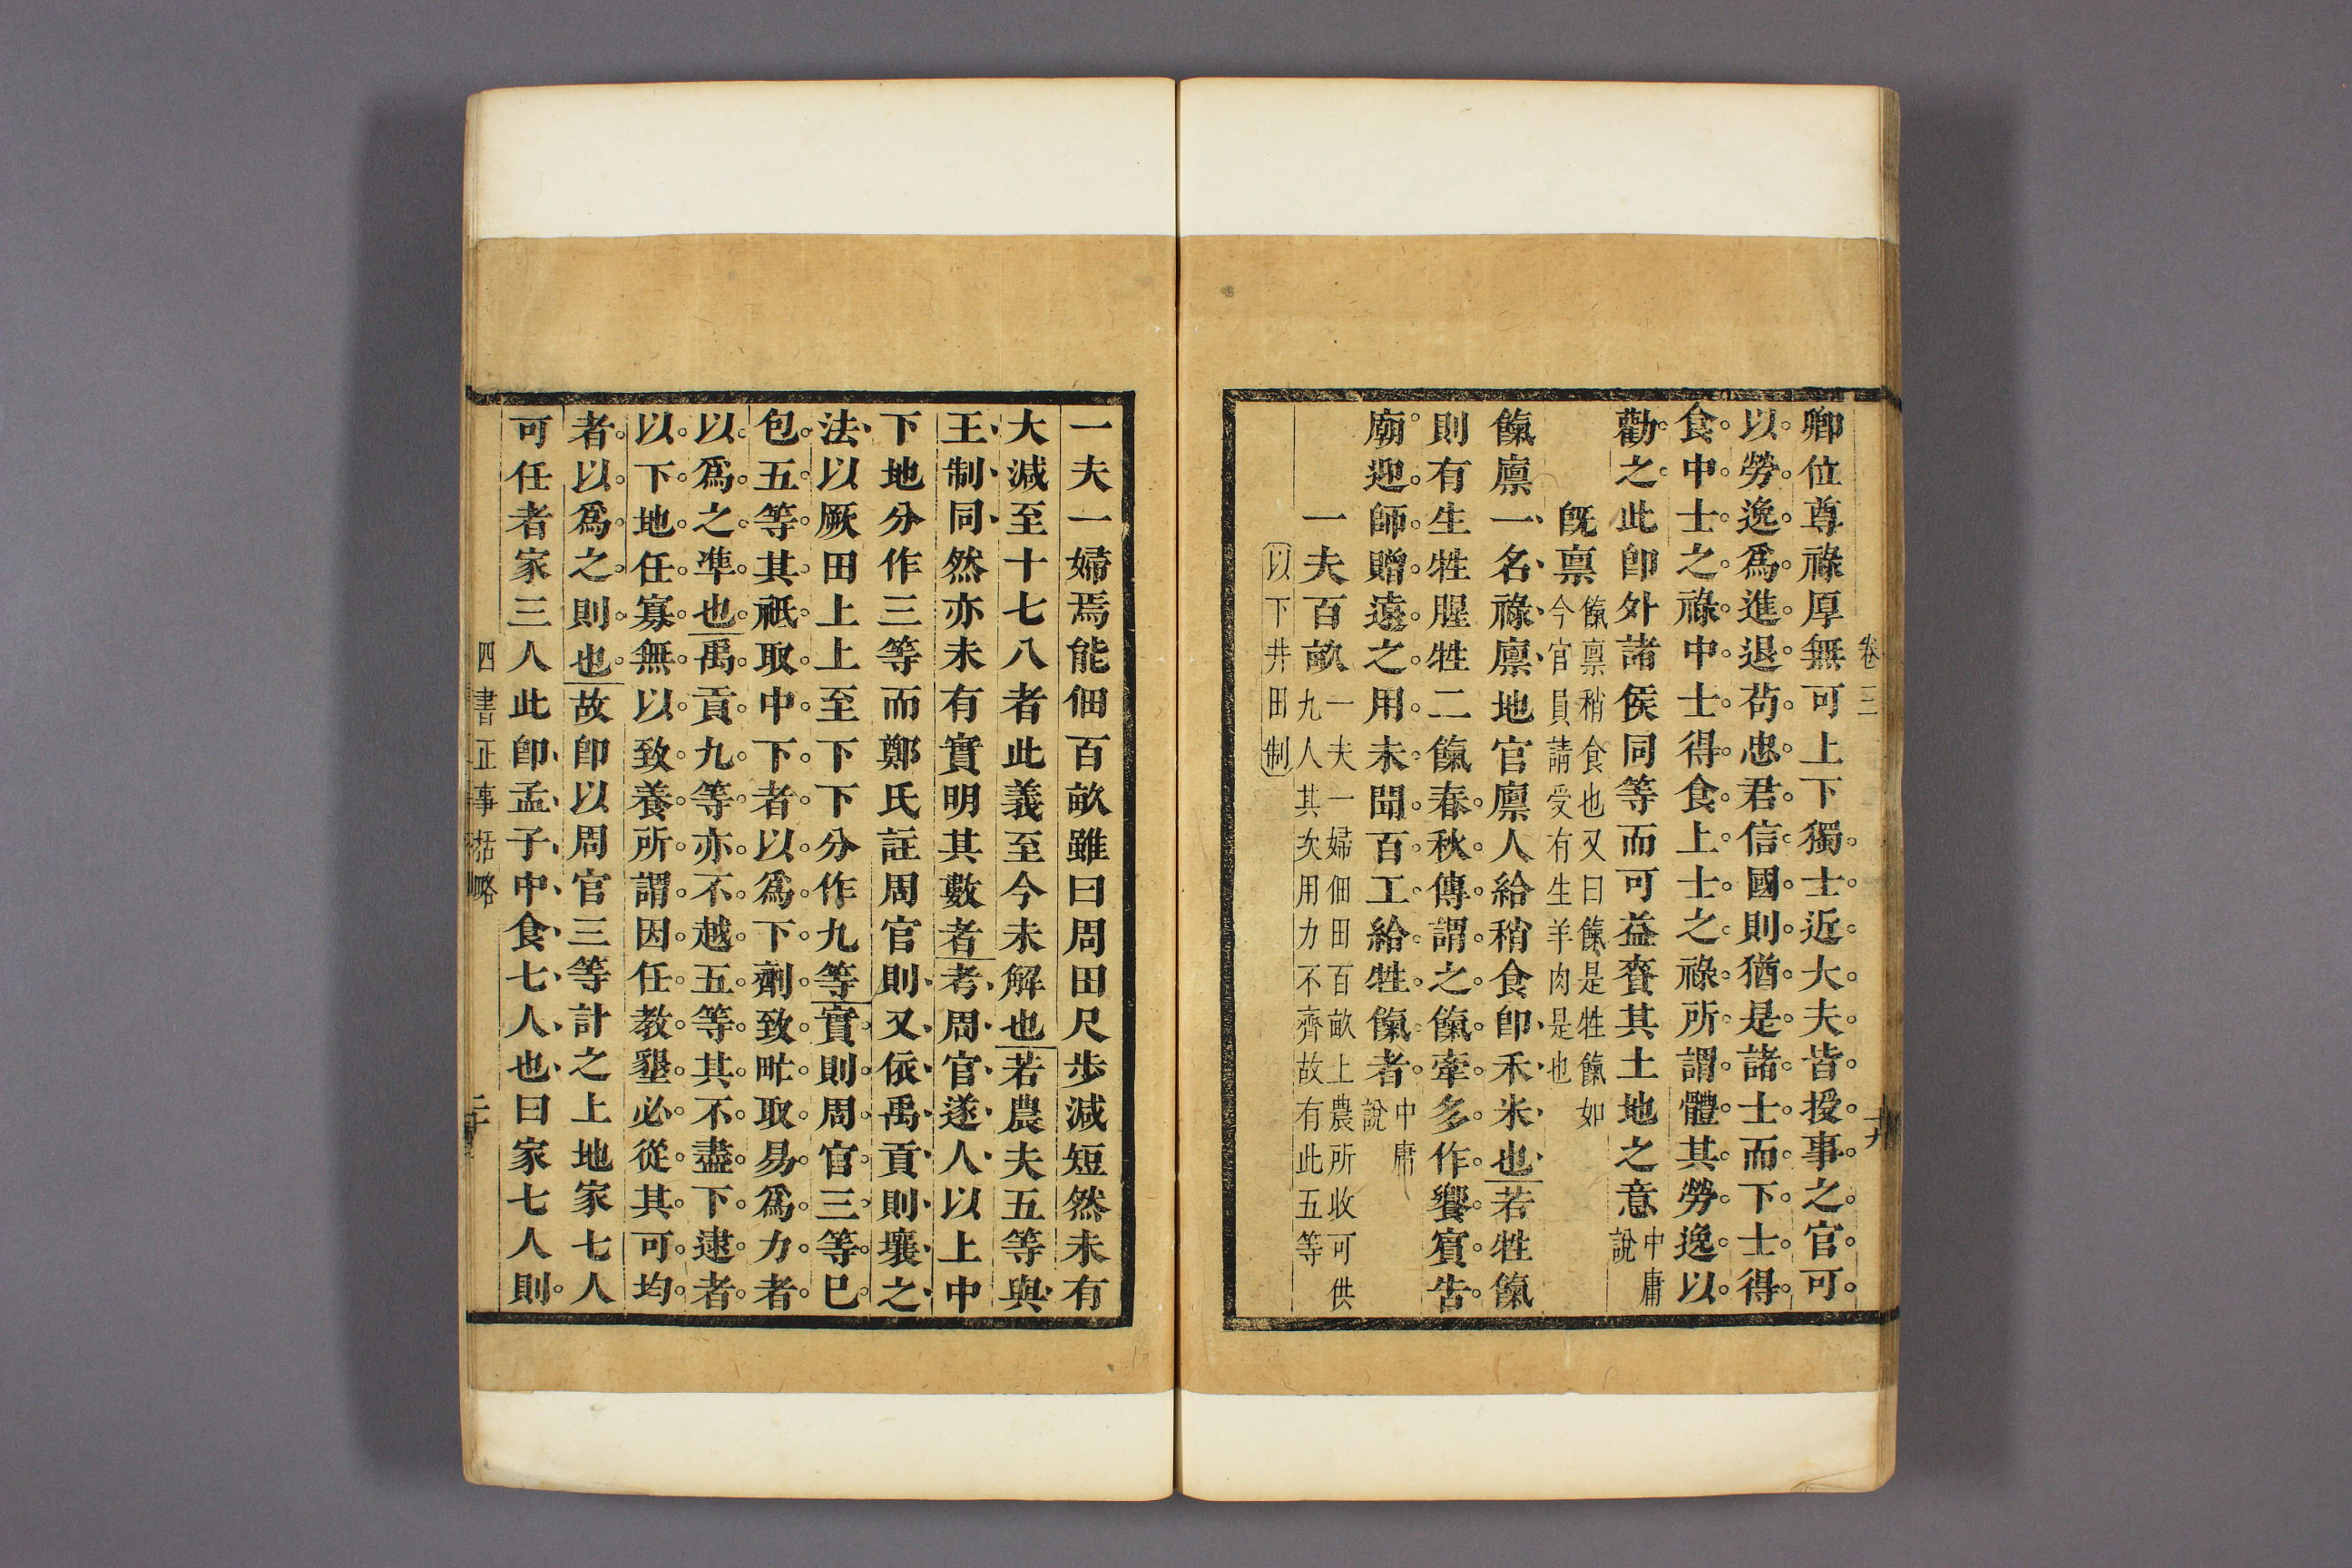 卷三
十九
卿位尊祿厚無可上下獨士近大夫皆授事之官可
以勞逸爲進退苟忠君信國則猶是諸士而下士得
食中士之祿中士得食上士之祿所謂體其勞逸以
勸之此卽外諸侯同等而可益賚其土地之意中庸說
旣禀餼禀稍食也又曰餼是牲餼如
今官員請受有生羊肉是也
餼廪一名祿廪地官廪人給稍食卽禾米也若牲餼
則有生牲腥牲二餼春秋傳謂之餼牽多作饗賓告
廟迎師贈遠之用未聞百工給牲餼者中庸說
一夫百畝一夫一婦佃田百畝上農所收可供
九人其次用力不齊故有此五等
以下井田制
一夫一婦焉能佃百畝雖曰周田尺步減短然未有
大減至十七八者此義至今未解也若農夫五等與
王制同然亦未有實明其數者考周官遂人以上中
下地分作三等而鄭氏註周官則又依禹貢則壤之
法以厥田上上至下下分作九等實則周官三等巳
包五等其祇取中下者以爲下劑致甿取易爲力者
以爲之準也禹貢九等亦不越五等其不盡下逮者
以下地任寡無以致養所謂因任教墾必從其可均
者以爲之則也故卽以周官三等計之上地家七人
可任者家三人此卽孟子中食七人也曰家七人則
四書正事括略
二十